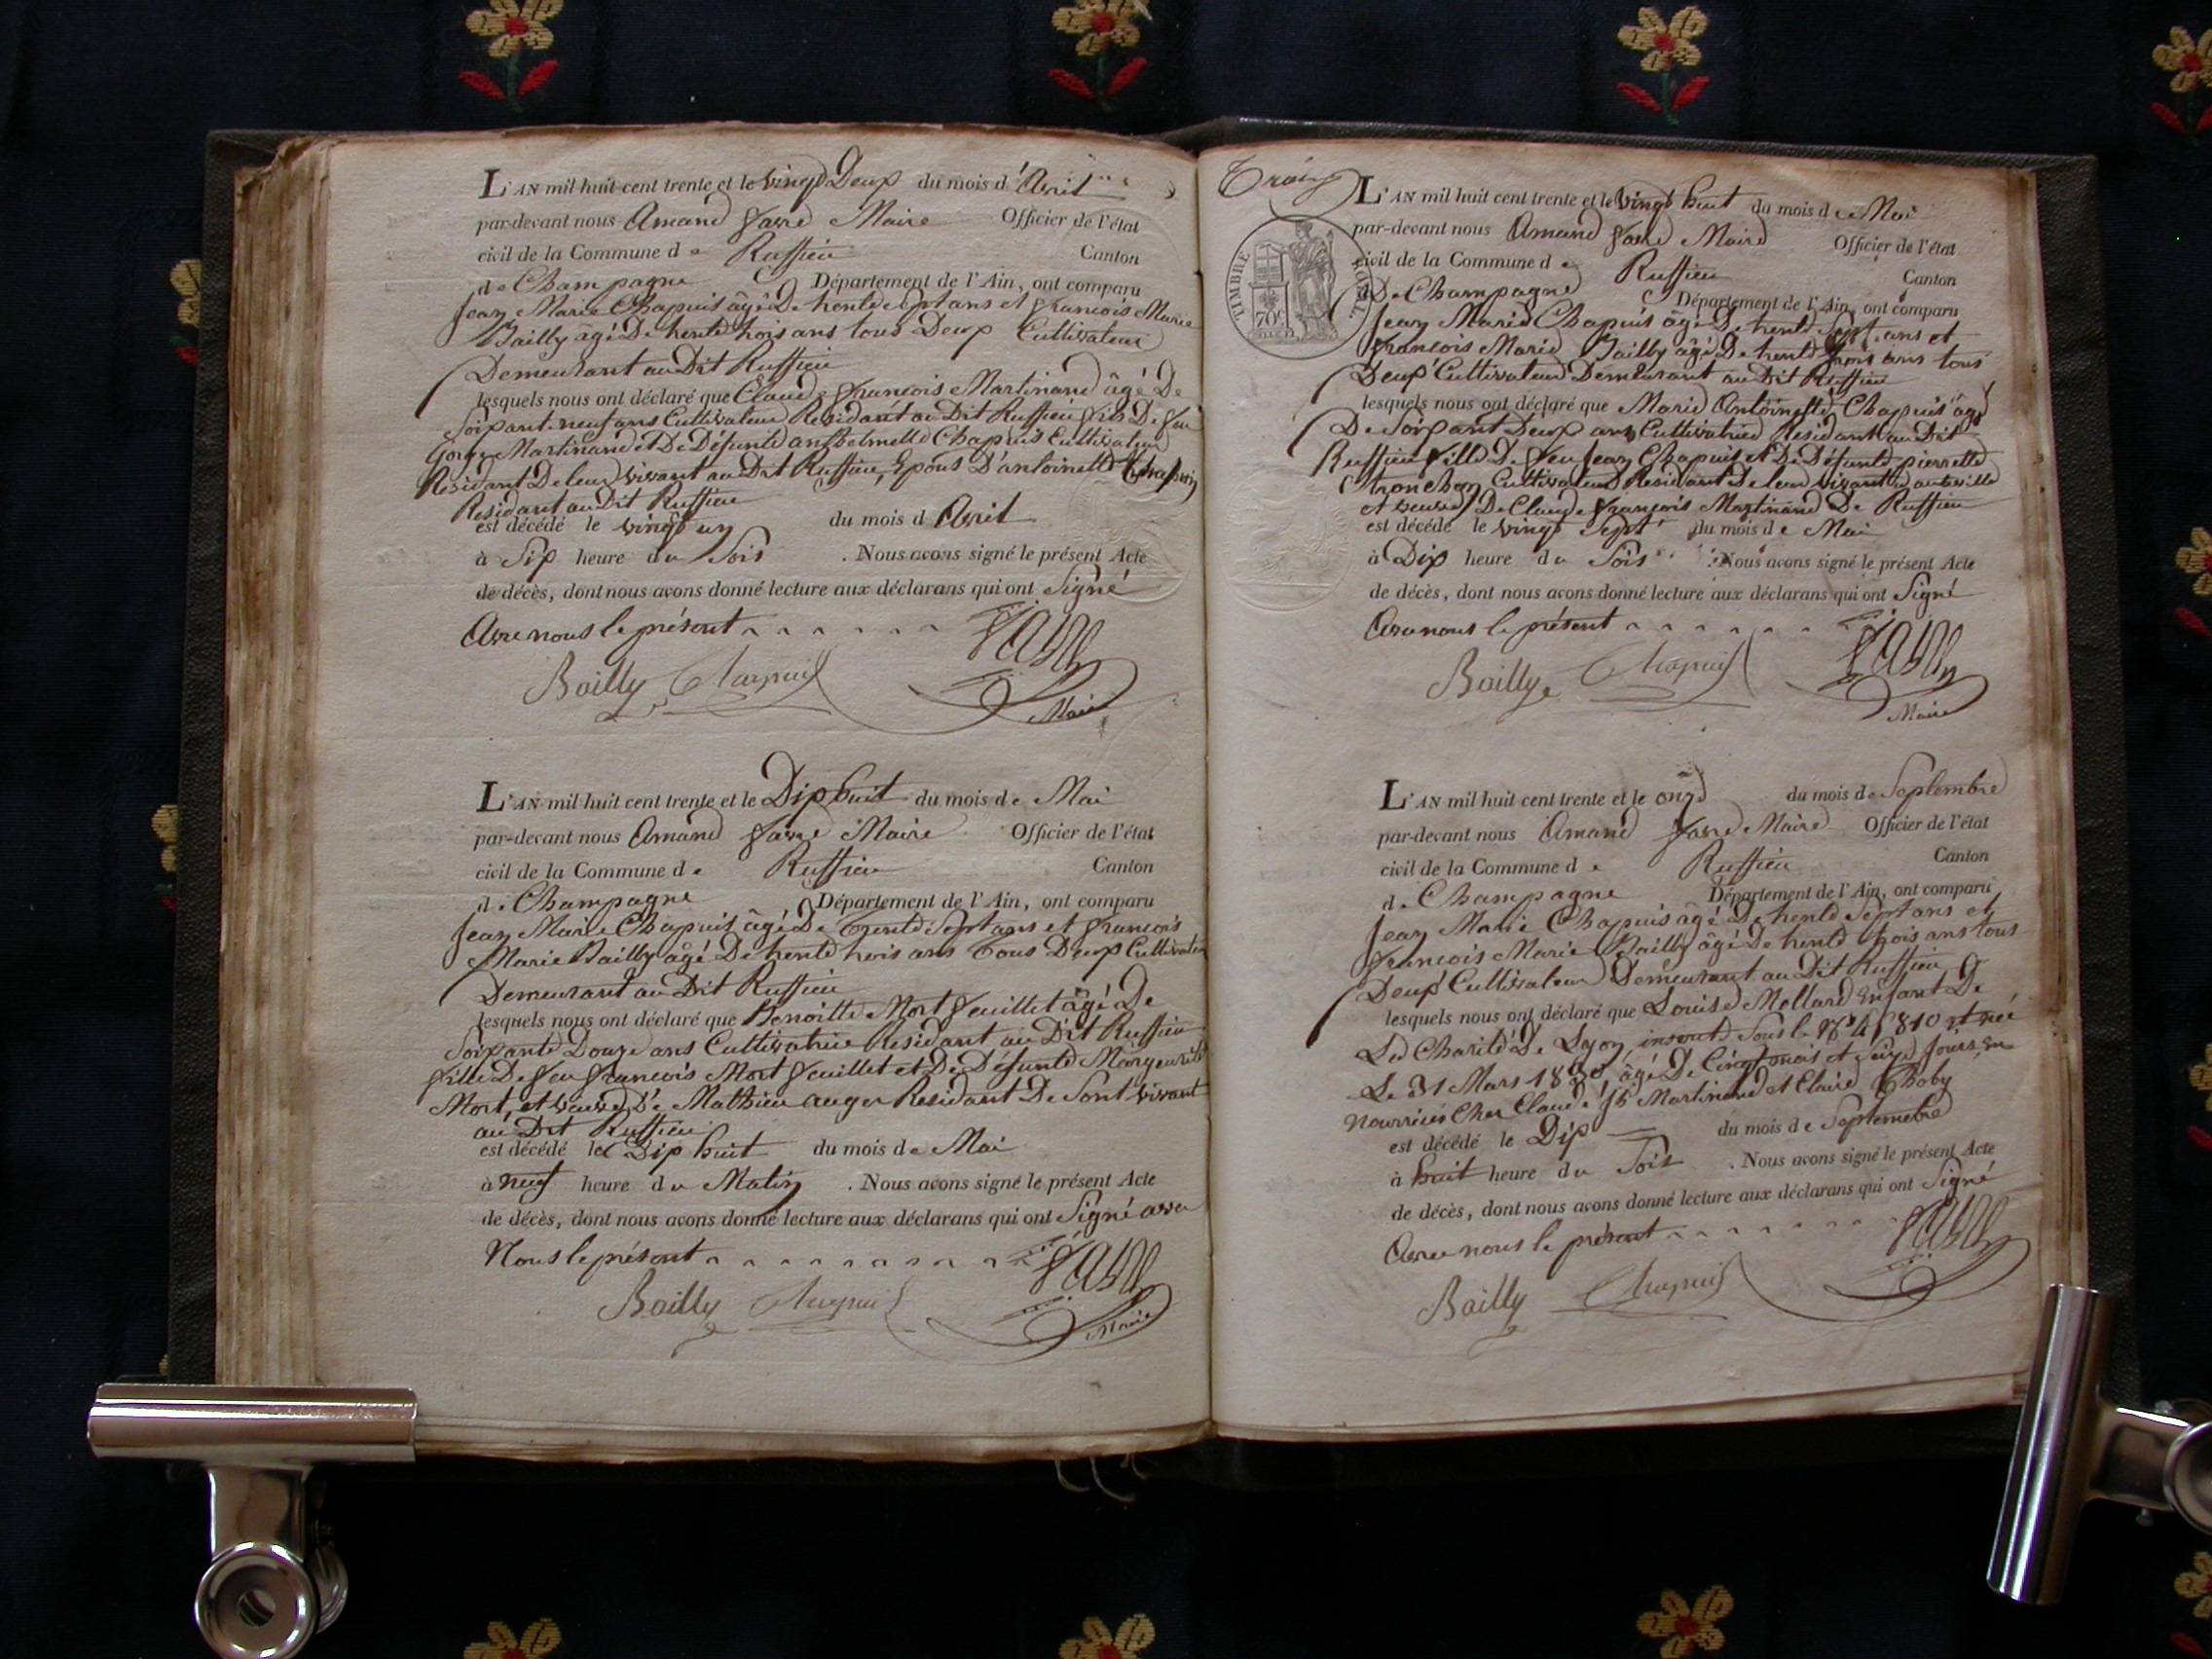 L'AN mil huit cent trente et le vingt Deux du mois d'Avril
par-devant nous Amand favre Maire Officier de l'état
civil de la Commune de Ruffieu Canton
de Champagne Département de l'Ain, ont comparu
Jean Marie Chapuis âgé De trente sept ans et francois Marie
Bailly âgé De trente trois ans tous Deux Cultivateur
Demeurant au Dit Ruffieu
lesquels nous ont déclaré que Claude francois Martinand âgé De
Soixant neuf ans Cultivateur Residant au Dit Ruffieu fils De feu
Martinand et De Défunte Chapuis Cultivateur
Residant De leur vivant au Dit Ruffieu, Epous D'antoinette Chapuis
Residant au Dit Ruffieu
est décédé le vingt un du mois d Avril
à Six heure du Soir . Nous avons signé le présent Acte
de décès, dont nous avons donné lecture aux déclarans qui ont Signé
Avec nous le présent
Bailly Chapuis favre
Maire
L'AN mil huit cent trente et le Dix huit du mois de Mai
par-devant nous Amand favre Maire Officier de l'état
civil de la Commune de Ruffieu Canton
de Champagne Département de l'Ain, ont comparu
Jean Marie Chapuis âgé De Trente Sept ans et francois
Marie Bailly âgé De trente trois ans Tous Deux Cultivateur
Demeurant au Dit Ruffieu
lesquels nous ont déclaré que Benoitte Mort feuillet âgé De
Soixante Douze ans Cultivatrice Residant au Dit Ruffieu
fille De feu francois Mort feuillet et De Défunte Margeurite
Mort, et veuve De Mathieu auger Residant De Sont vivant
au Dit Ruffieu
est décédé le Dix huit du mois de Mai
à neuf heure du Matin . Nous avons signé le présent Acte
de décès, dont nous avons donné lecture aux déclarans qui ont Signé avec
Nous le présent
Bailly Chapuis favre
Maire
Trois
TIMBRE ROYAL
70c
L'AN mil huit cent trente et le vingt huit du mois de Mai
par-devant nous Amand favre Maire Officier de l'état
civil de la Commune de Ruffieu Canton
De Champagne Département de l'Ain, ont comparu
Jean Marie Chapuis âgé De trente Sept ans et
francois Marie Bailly âgé De trente trois ans tous
Deux Cultivateur Demeurant au Dit Ruffieu
lesquels nous ont déclaré que Marie Antoinette Chapuis âgé
De Soixant Deux ans Cultivatrice Residant au Dit
Ruffieu fille De feu Jean Chapuis et De Défunte pierrette
tronchon Cultivateur Residant De leur vivant
et veuve De Claude francois Martinand De Ruffieu
est décédé le vingt Sept du mois de Mai
à Dix heure du Soir . Nous avons signé le présent Acte
de décès, dont nous avons donné lecture aux déclarans qui ont Signé
Avec nous le présent
Bailly Chapuis favre
Maire
L'AN mil huit cent trente et le onze du mois de Septembre
par-devant nous Amand favre Maire Officier de l'état
civil de la Commune de Ruffieu Canton
de Champagne Département de l'Ain, ont comparu
Jean Marie Chapuis âgé De trente Sept ans et
francois Marie Bailly âgé De trente trois ans tous
Deux Cultivateur Demeurant au Dit Ruffieu
lesquels nous ont déclaré que Louise Mollard Enfant De
La Charité De Lyon, inscrite Sous le et née
Le 31 Mars 1830, âgé De Cinq mois et Jours en
nourrice Cher Claude Martinand et Claire Thoby
est décédé le Dix du mois de Septembre
à huit heure du Soir . Nous avons signé le présent Acte
de décès, dont nous avons donné lecture aux déclarans qui ont Signé
Avec nous le présent
Bailly Chapuis favre